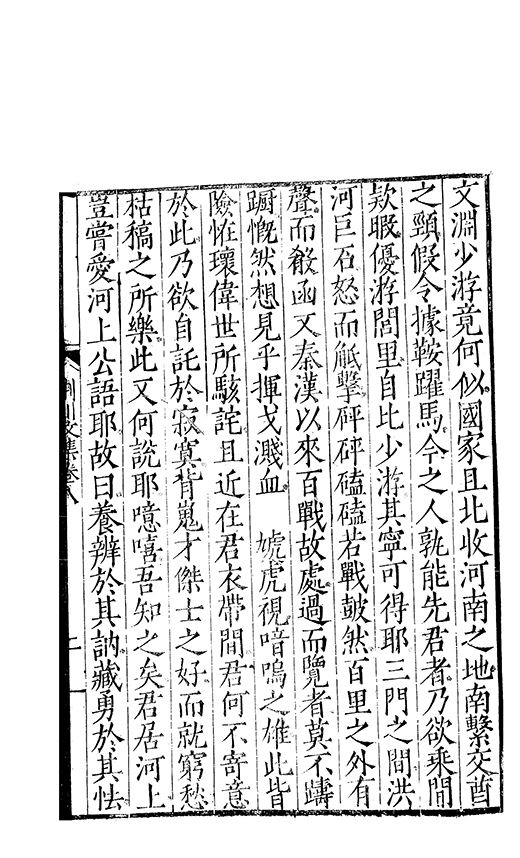 文淵少游竟何似國家且北收河南之地南繫交酋
之頸假令據鞍躍馬今之人孰能先君者乃欲乘間
欵暇優游閭里自比少游其寧可得耶三門之間洪
河巨石怒而觝擊砰砰磕磕若戰皷然百里之外有
聲而殽函又秦漢以來百戰故處過而覽者莫不躊
躕慨然想見乎揮戈濺血 虓虎視喑嗚之雄此皆
險恠瓌偉世所駭詫且近在君衣帶間君何不寄意
於此乃欲自託於寂寞背嵬才傑士之好而就窮愁
枯稿之所樂此又何說耶噫嘻吾知之矣君居河上
豈嘗愛河上公語耶故曰養辨於其訥藏勇於其怯
荆川文集卷八